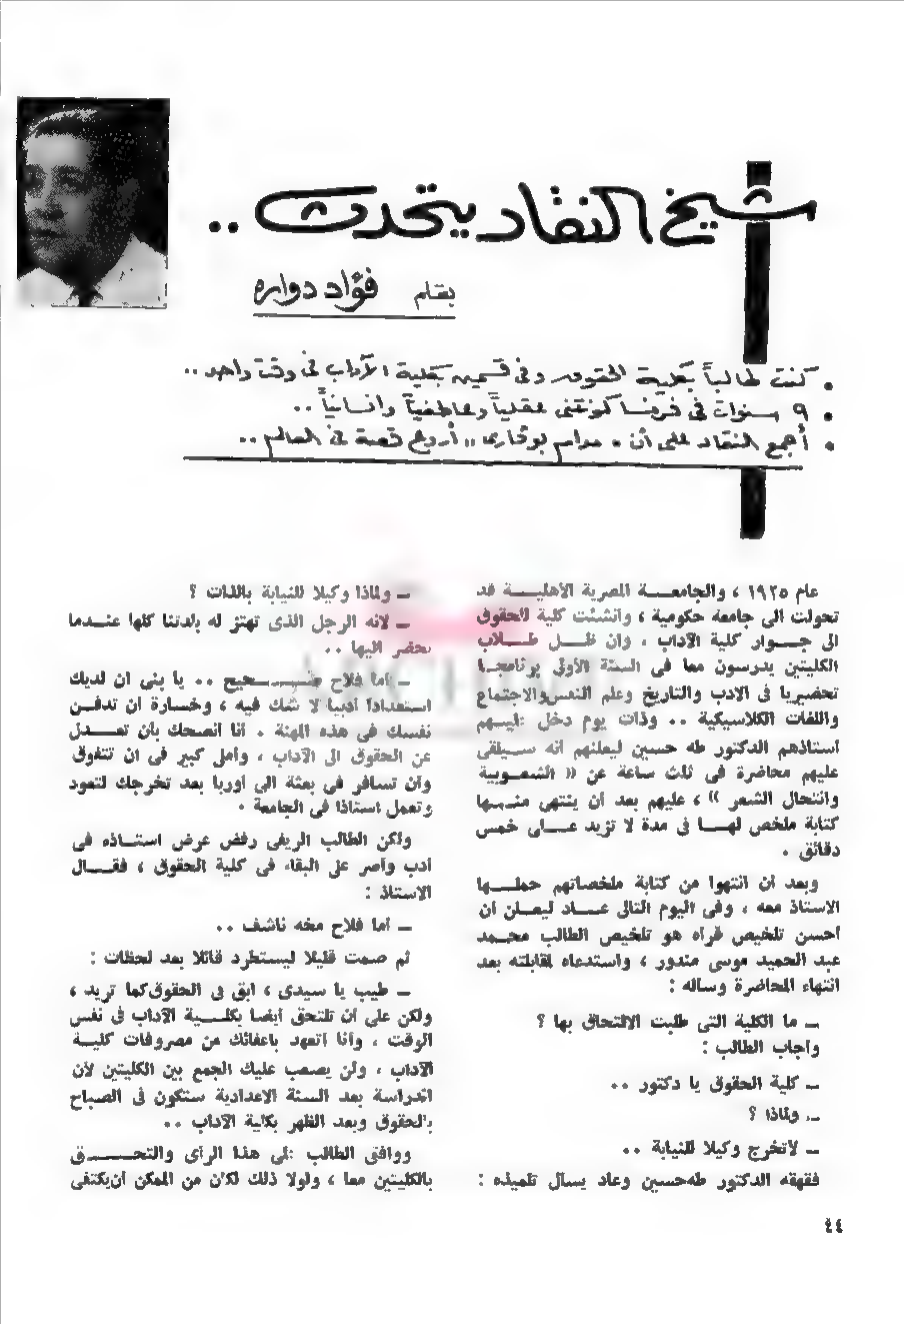 شيخ النقاد يتحدث ..
بقلم فؤاد دواره
• كنت طالباً بكلية الحقوق وفى قسمين بكلية الآداب فى وقت واحد ..
• ٩ سنوات فى فرنسا كونتنى عقلياً وعاطفياً وانسانياً ..
• أجمع النقاد على أن « مدام بوفارى » أروع قصة فى العالم ..
عام ١٩٢٥ ، والجامعة المصرية الاهلية قد
تحولت الى جامعة حكومية ، وانشئت كلية الحقوق
الى جوار كلية الآداب ، وان ظل طلاب
الكليتين يدرسون معا فى السنة الأولى برنامجا
تحضيريا فى الادب والتاريخ وعلم النفس والاجتماع
واللغات الكلاسيكية .. وذات يوم دخل اليهم
استاذهم الدكتور طه حسين ليعلنهم انه سيلقى
عليهم محاضرة فى ثلث ساعة عن « الشعوبية
وانتحال الشعر » ، عليهم بعد أن ينتهى منها
كتابة ملخص لها فى مدة لا تزيد على خمس
دقائق .
وبعد أن انتهوا من كتابة ملخصاتهم حملها
الاستاذ معه ، وفى اليوم التالى عاد ليعلن أن
أحسن تلخيص قرأه هو تلخيص الطالب محمد
عبد الحميد موسى مندور ، واستدعاه لمقابلته بعد
انتهاء المحاضرة وسأله :
ـ ما الكلية التى طلبت الالتحاق بها ؟
وأجاب الطالب :
ـ كلية الحقوق يا دكتور ..
ـ ولماذا ؟
ـ لأتخرج وكيلا للنيابة ..
فقهقه الدكتور طه حسين وعاد يسأل تلميذه :
ـ ولماذا وكيلا للنيابة بالذات ؟
ـ لانه الرجل الذى تهتز له بلدتنا كلها عندما
يحضر اليها ..
ـ أما فلاح صحيح .. يا بنى ان لديك
استعدادا أدبيا لا شك فيه ، وخسارة أن تدفن
نفسك فى هذه المهنة . أنا أنصحك بأن تعدل
عن الحقوق الى الآداب ، وأملى كبير فى ان تتفوق
وأن تسافر فى بعثة الى أوربا بعد تخرجك لتعود
وتعمل استاذا فى الجامعة .
ولكن الطالب الريفى رفض عرض استاذه فى
أدب وأصر على البقاء فى كلية الحقوق ، فقال
الاستاذ :
ـ أما فلاح مخه ناشف ..
ثم صمت قليلا ليستطرد قائلا بعد لحظات :
ـ طيب يا سيدى ، ابق فى الحقوق كما تريد ،
ولكن على أن تلتحق أيضا بكلية الآداب فى نفس
الوقت ، وأنا أتعهد باعفائك من مصروفات كلية
الآداب ، ولن يصعب عليك الجمع بين الكليتين لأن
الدراسة بعد السنة الاعدادية ستكون فى الصباح
بالحقوق وبعد الظهر بكلية الآداب ..
ووافق الطالب الى هذا الرأى والتحق
بالكليتين معا ، ولولا ذلك لكان من الممكن أن يكتفى
٤٤